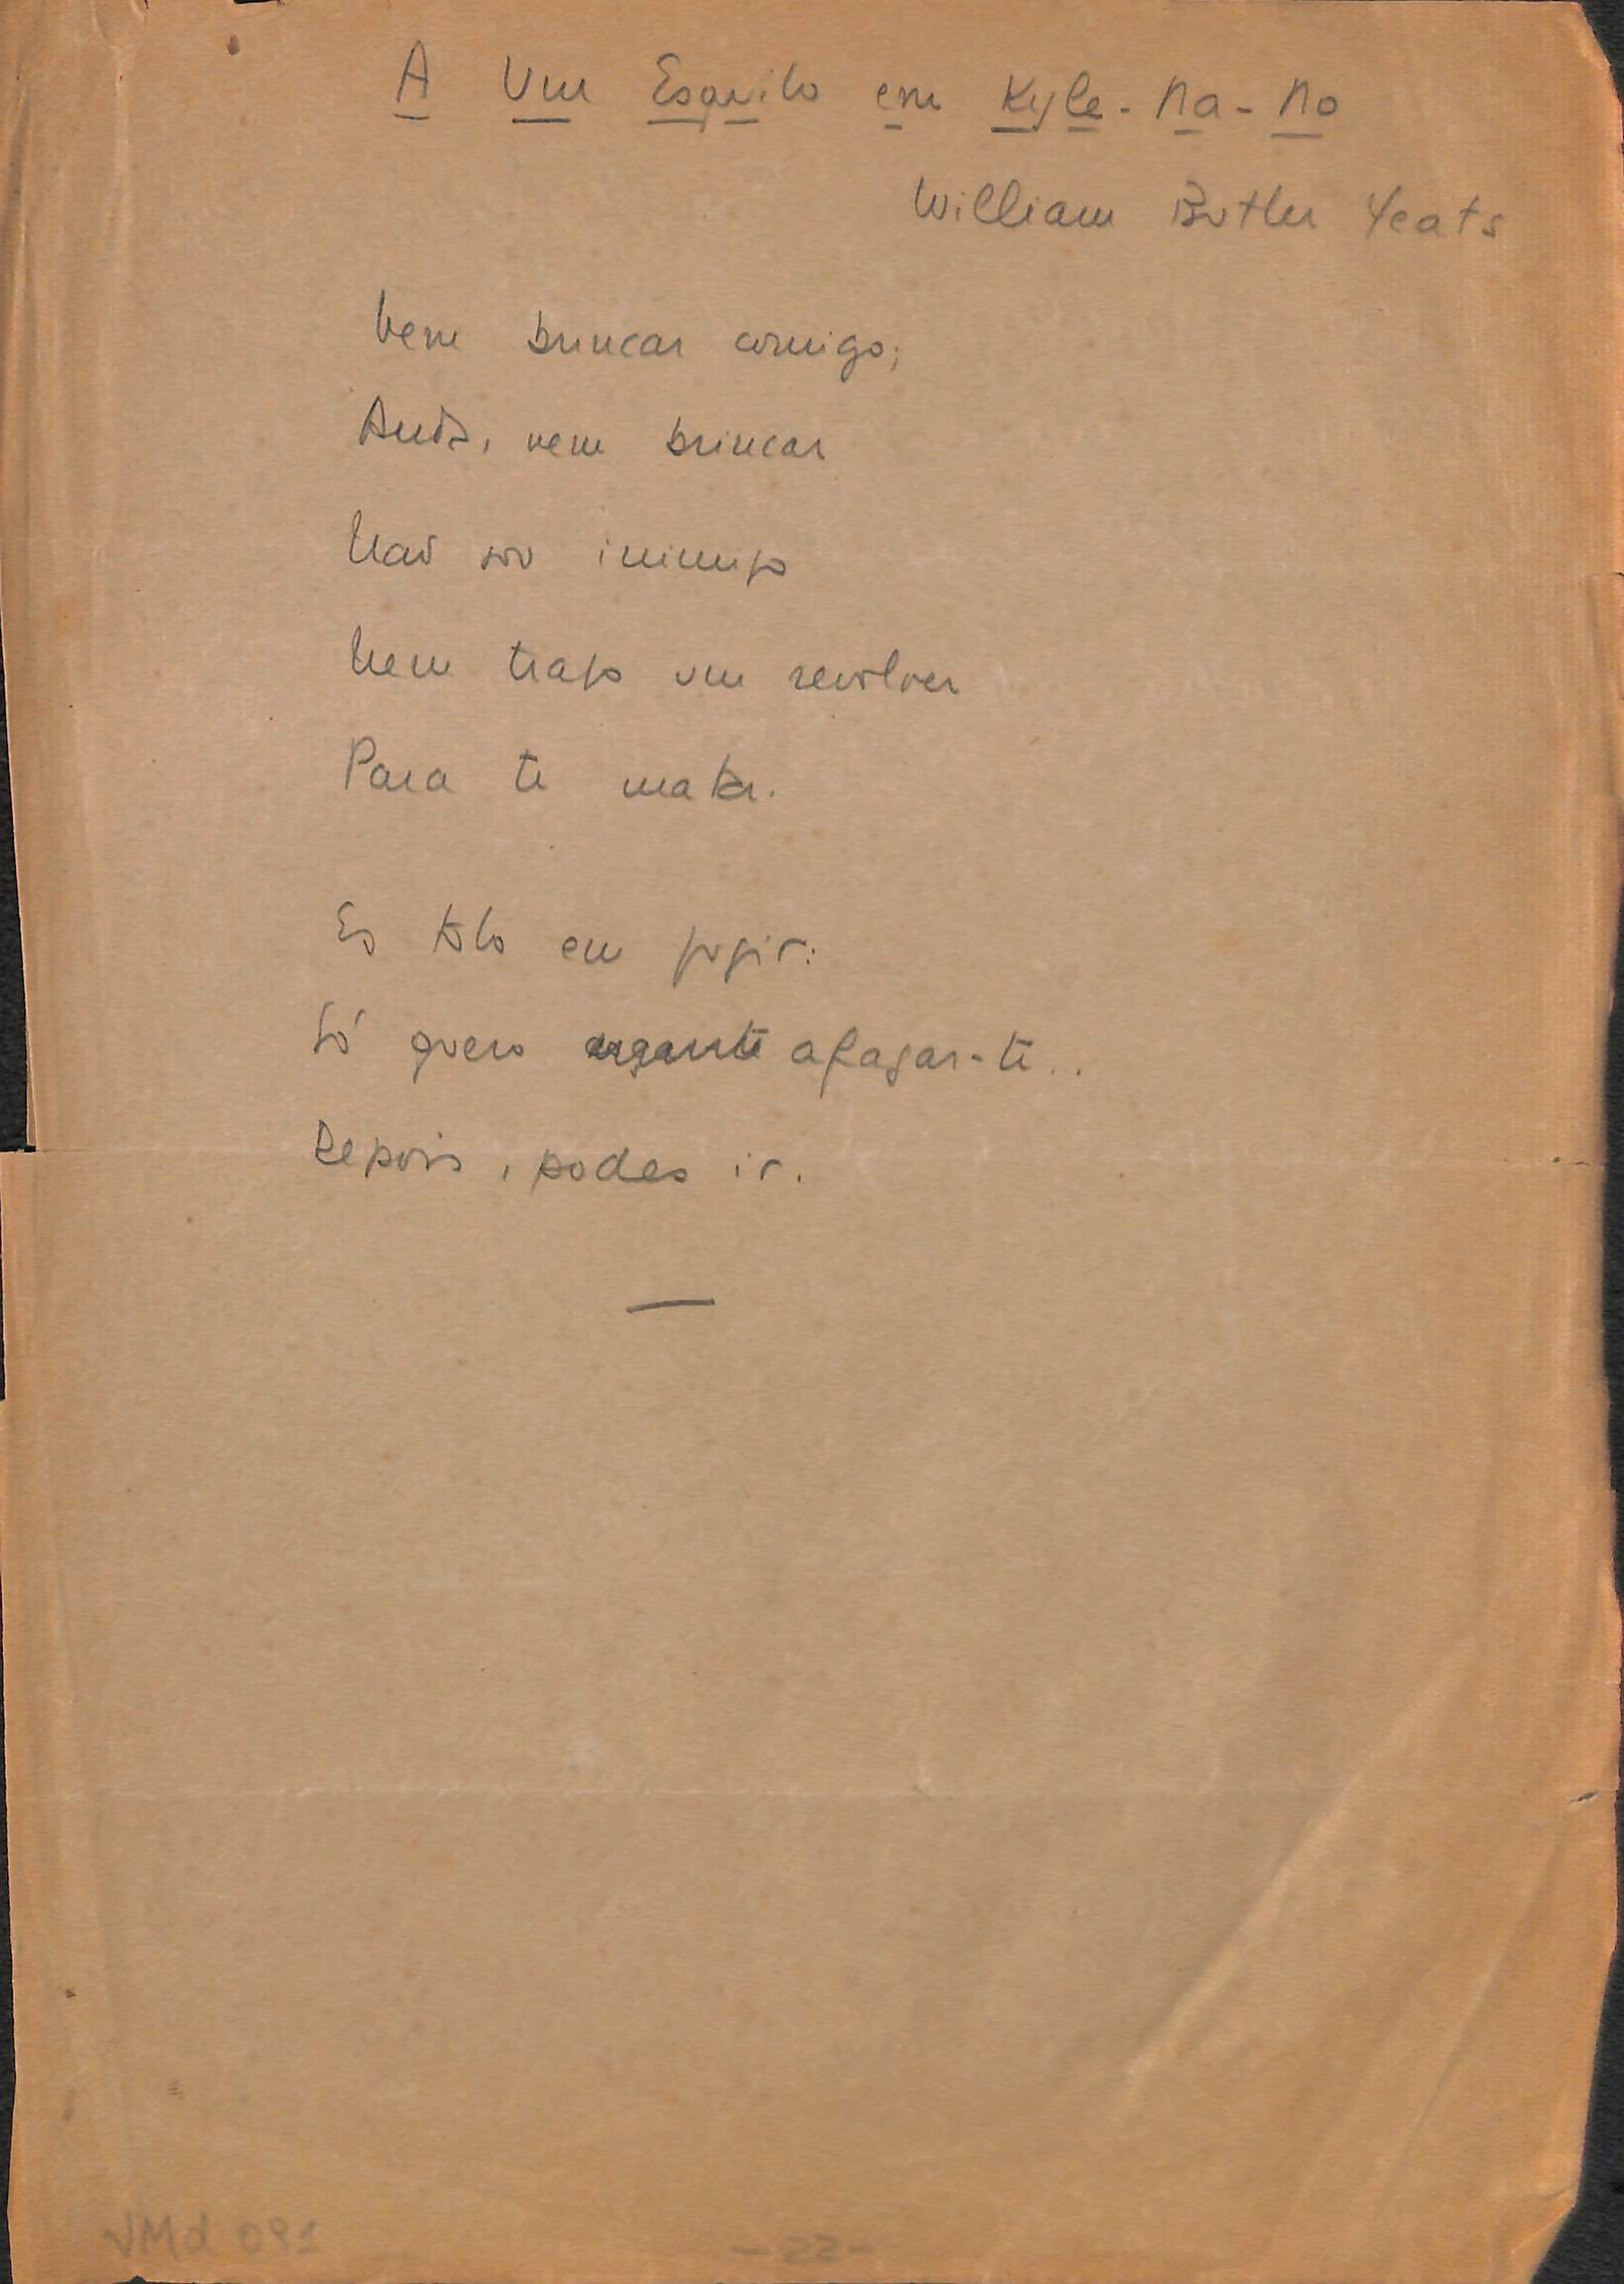 A Um Esquilo em Kyle-Na-No
William Butler Yeats
Vem brincar comigo;
Anda, vem brincar
Não sou inimigo
Nem trago um revolver
Para te matar.
Es tolo em fugir:
Só quero afagar-te..
Depois, podes ir.
—
VMd 091
- 22 -